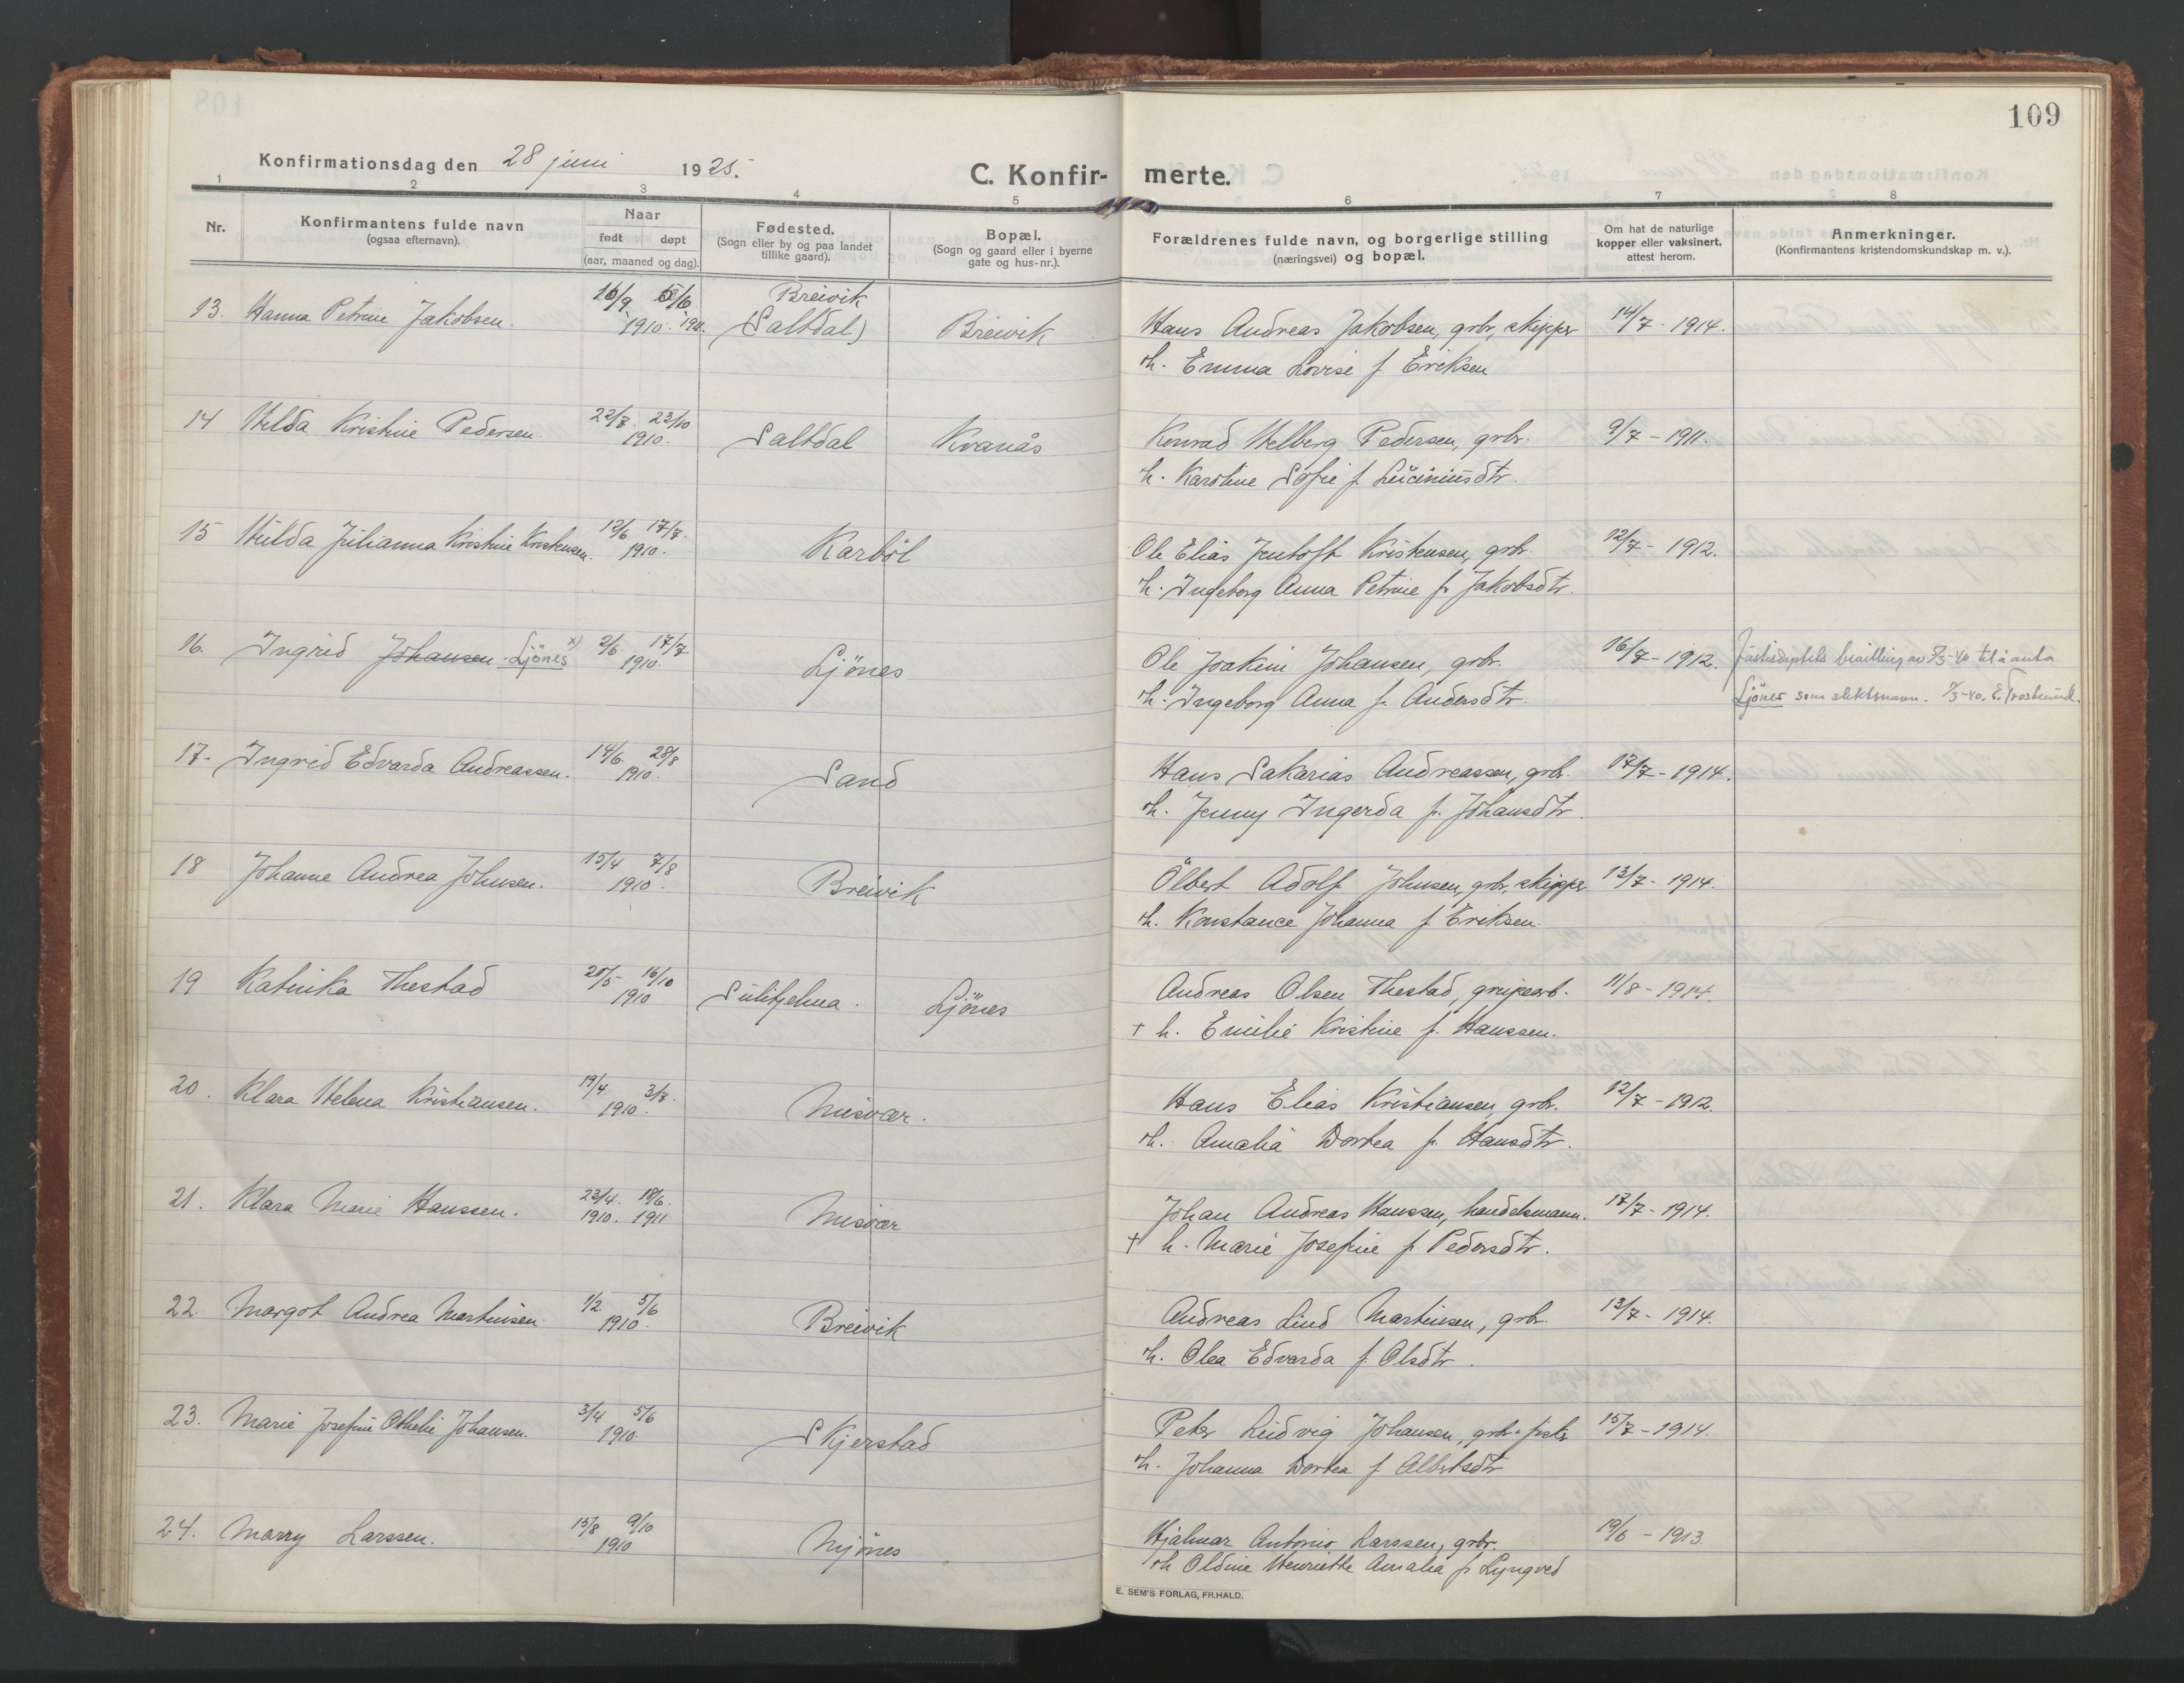 109
Konfirmationsdag den 28 juni 1925.
C. Konfir- merte.
1 2 3 4 5 6 7 8
Nr.
Konfirmantens fulde navn
(ogsaa efternavn).
Naar
født døpt
(aar, maaned og dag).
Fødested.
(Sogn eller by og paa landet
tillike gaard).
Bopæl.
(Sogn og gaard eller i byerne
gate og hus-nr.).
Forældrenes fulde navn, og borgerlige stilling
(næringsvei) og bopæl.
Om hat de naturlige
kopper eller vaksinert,
attest herom.
Anmerkninger.
(Konfirmantens kristendomskundskap m. v.).
13. Hanna Petrine Jakobsen. 16/9 1910. 5/6 1911. Breivik (Saltdal) Breivik Hans Andreas Jakobsen, grbr, skipper 14/7 - 1914.
oh. Emma Lovise f. Eriksen
14 Hilda Kristine Pedersen. 22/8. 23/10 1910. Saltdal Kvanås Konrad Helberg Pedersen, grbr. 9/7 - 1911.
h. Karoline Sofie f. Luciniusdtr.
15 Hilda Julianna Kristine Kristensen. 12/6 17/7. 1910. Karbøl Ole Elias Jentoft Kristensen, grbr. 12/7 - 1912.
h. Ingeborg Anna Petrine f. Jakobsdtr.
16. Ingrid Johansen. Ljönes x) 2/6. 17/7 1910. Ljönes Ole Joakim Johansen, grbr. 16/7 - 1912. Justisdeptets bevilling av 5/3-40 til å anta
h. Ingeborg Anna f. Andersdtr. Ljönes som slektsnavn. 7/3-40.
17. Ingrid Edvarda Andreassen. 14/6. 28/8 1910. Sand Hans Sakarias Andreassen, grbr. 17/7 - 1914.
h. Jenny Ingerda f. Johansdtr.
18 Johanne Andrea Johnsen. 15/4 7/8 1910. Breivik Ölbert Adolf Johnsen, grbr, skipper 13/7 - 1914.
h. Konstance Johanna f. Eriksen.
19 Katinka Thestad 20/5 16/10 1910 Sulitjelma. Ljönes Andreas Olsen Thestad, grubearb. 11/8 - 1914.
† h. Emilie Kristine f. Hanssen.
20. Klara Helena Kristiansen. 19/4. 3/7. 1910. Misvær. Hans Elias Kristiansen, grbr. 12/7 - 1912.
h. Amalia Dortea f. Hansdtr.
21. Klara Marie Hanssen. 23/4. 1910. 18/6. 1911 Misvær Johan Andreas Hanssen, handelsmann. 17/7 - 1914.
† h. Marie Josefine f. Pedersdtr.
22. Margot Andrea Martinsen. 1/2 5/6 1910. Breivik Andreas Lind Martinsen, grbr. 13/7 - 1914.
h. Olea Edvarda f. Olsdtr.
23. Marie Josefine Othelie Johansen. 3/4 5/6 1910. Skjerstad Peter Ludvig Johansen, grbr. fisker 15/7 - 1914.
h. Johanna Dortea f Albertsdtr
24. Marry Larssen. 15/8 9/10 1910 Mjönes Hjalmar Antonio Larssen, grbr. 19/6 - 1913.
oh Oldine Henriette Amalia f Lyngved
E. SEM'S FORLAG, FR.HALD.